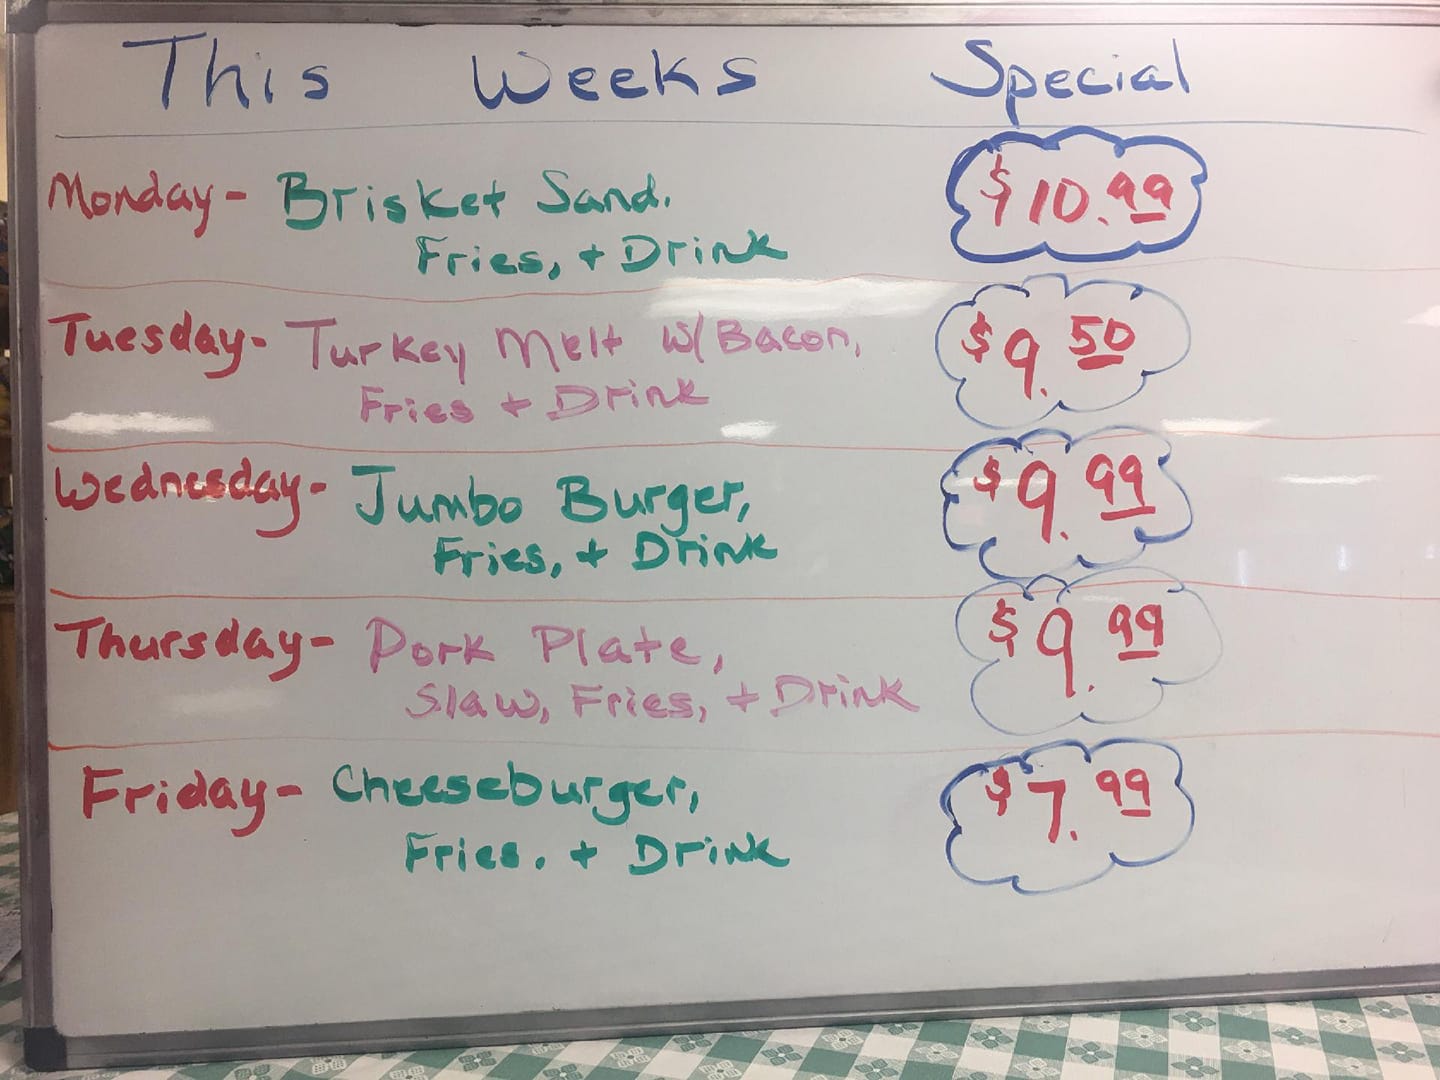 This Weeks Special
Monday- Brisket Sand. $10.99
Fries, + Drink
Tuesday- Turkey Melt W/Bacon, $9.50
Fries + Drink
Wednesday- Jumbo Burger, $9.99
Fries, + Drink
Thursday- Pork Plate, $9.99
Slaw, Fries, + Drink
Friday- Cheeseburger, $7.99
Fries. + Drink